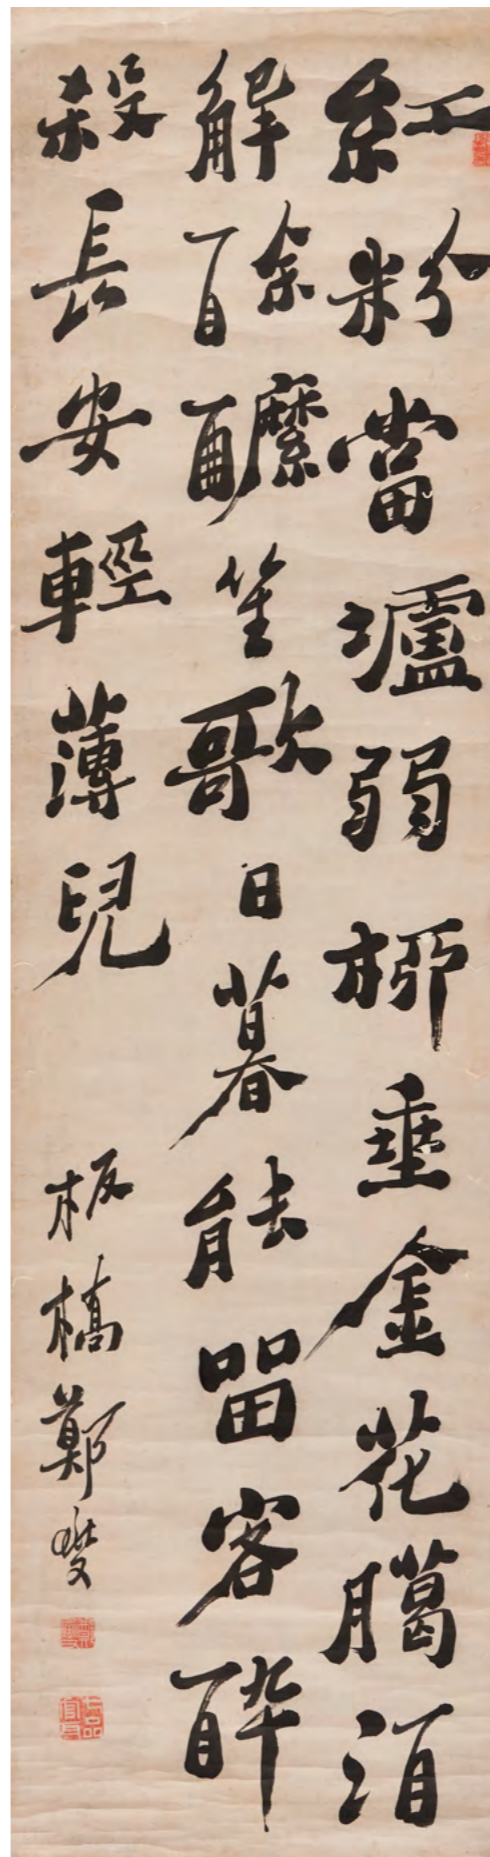 紅粉當壚弱柳垂金花臈酒
解酴醿笙歌日暮能留客醉
殺長安輕薄兒
板橋鄭燮
七品官耳